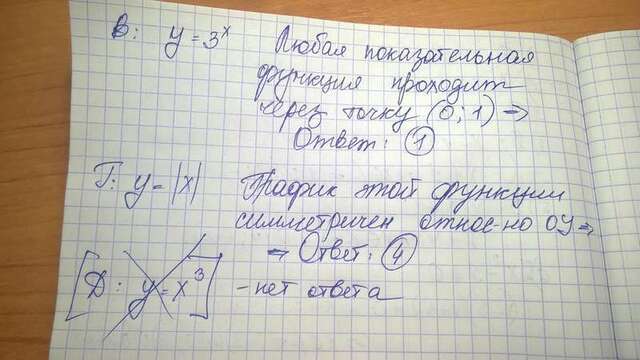 В: y = 3ˣ Любая показательная
функция проходит
через точку (0; 1) ⇒
Ответ: ①
Г: y = |x| График этой функции
симметричен относ-но ОУ ⇒
⇒ Ответ: ④
[Д: y = x³] - нет ответа